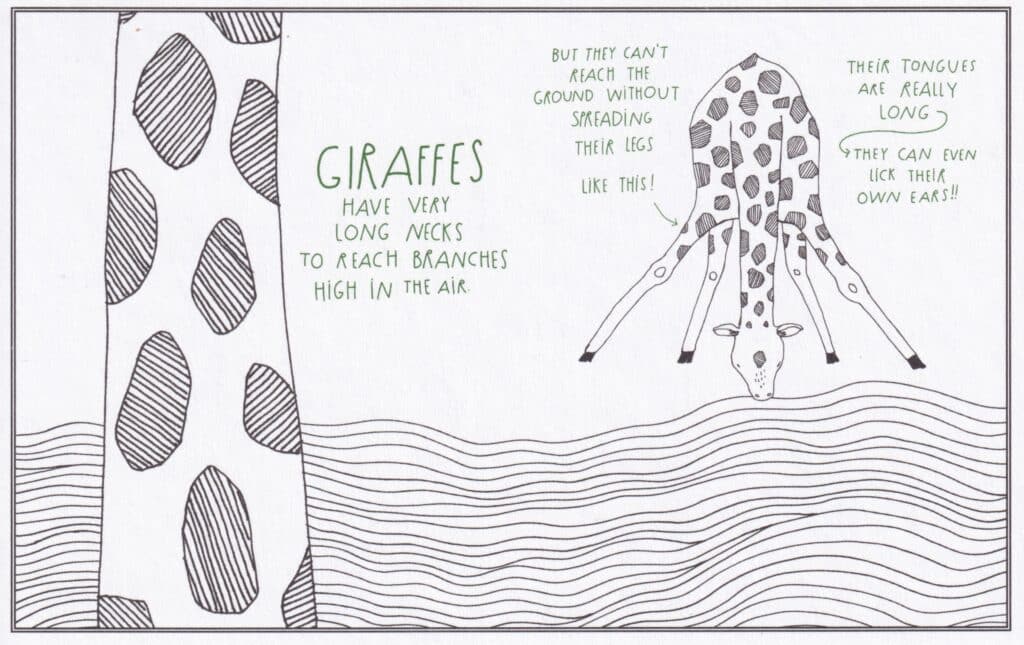 GIRAFFES
HAVE VERY
LONG NECKS
TO REACH BRANCHES
HIGH IN THE AIR.
BUT THEY CAN'T
REACH THE
GROUND WITHOUT
SPREADING
THEIR LEGS
LIKE THIS!
THEIR TONGUES
ARE REALLY
LONG
THEY CAN EVEN
LICK THEIR
OWN EARS!!